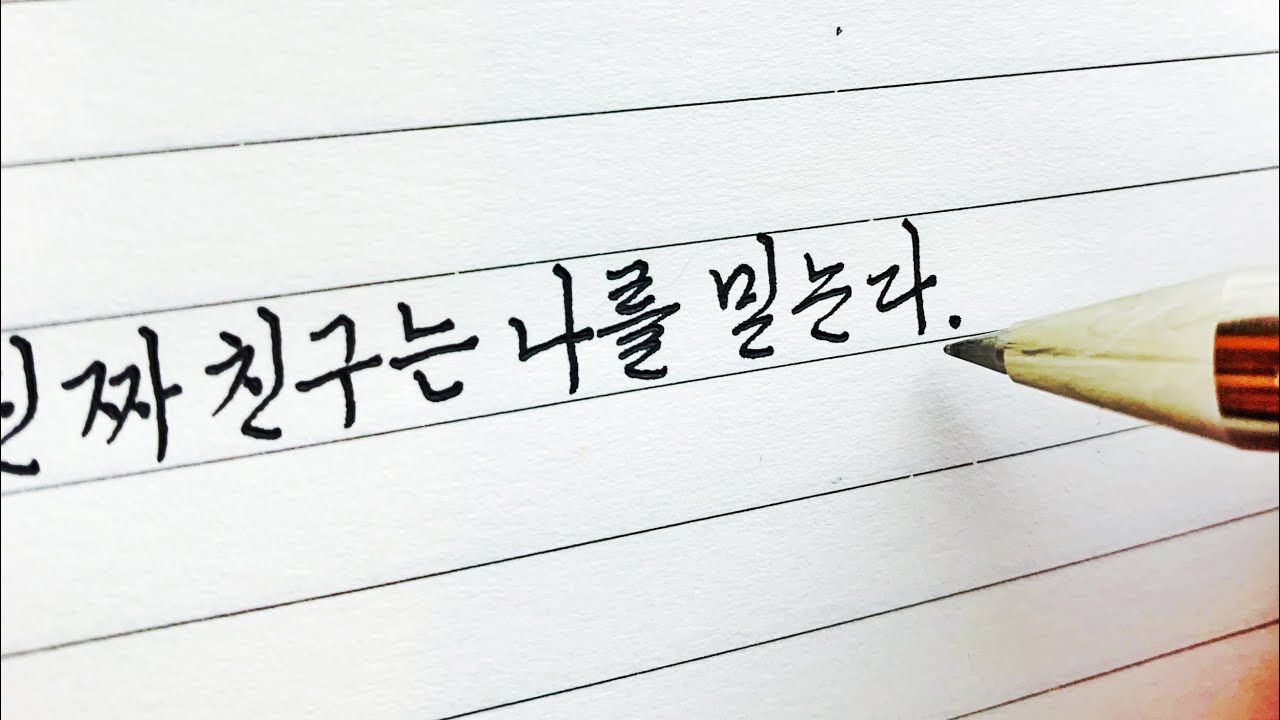 진짜 친구는 나를 믿는다.